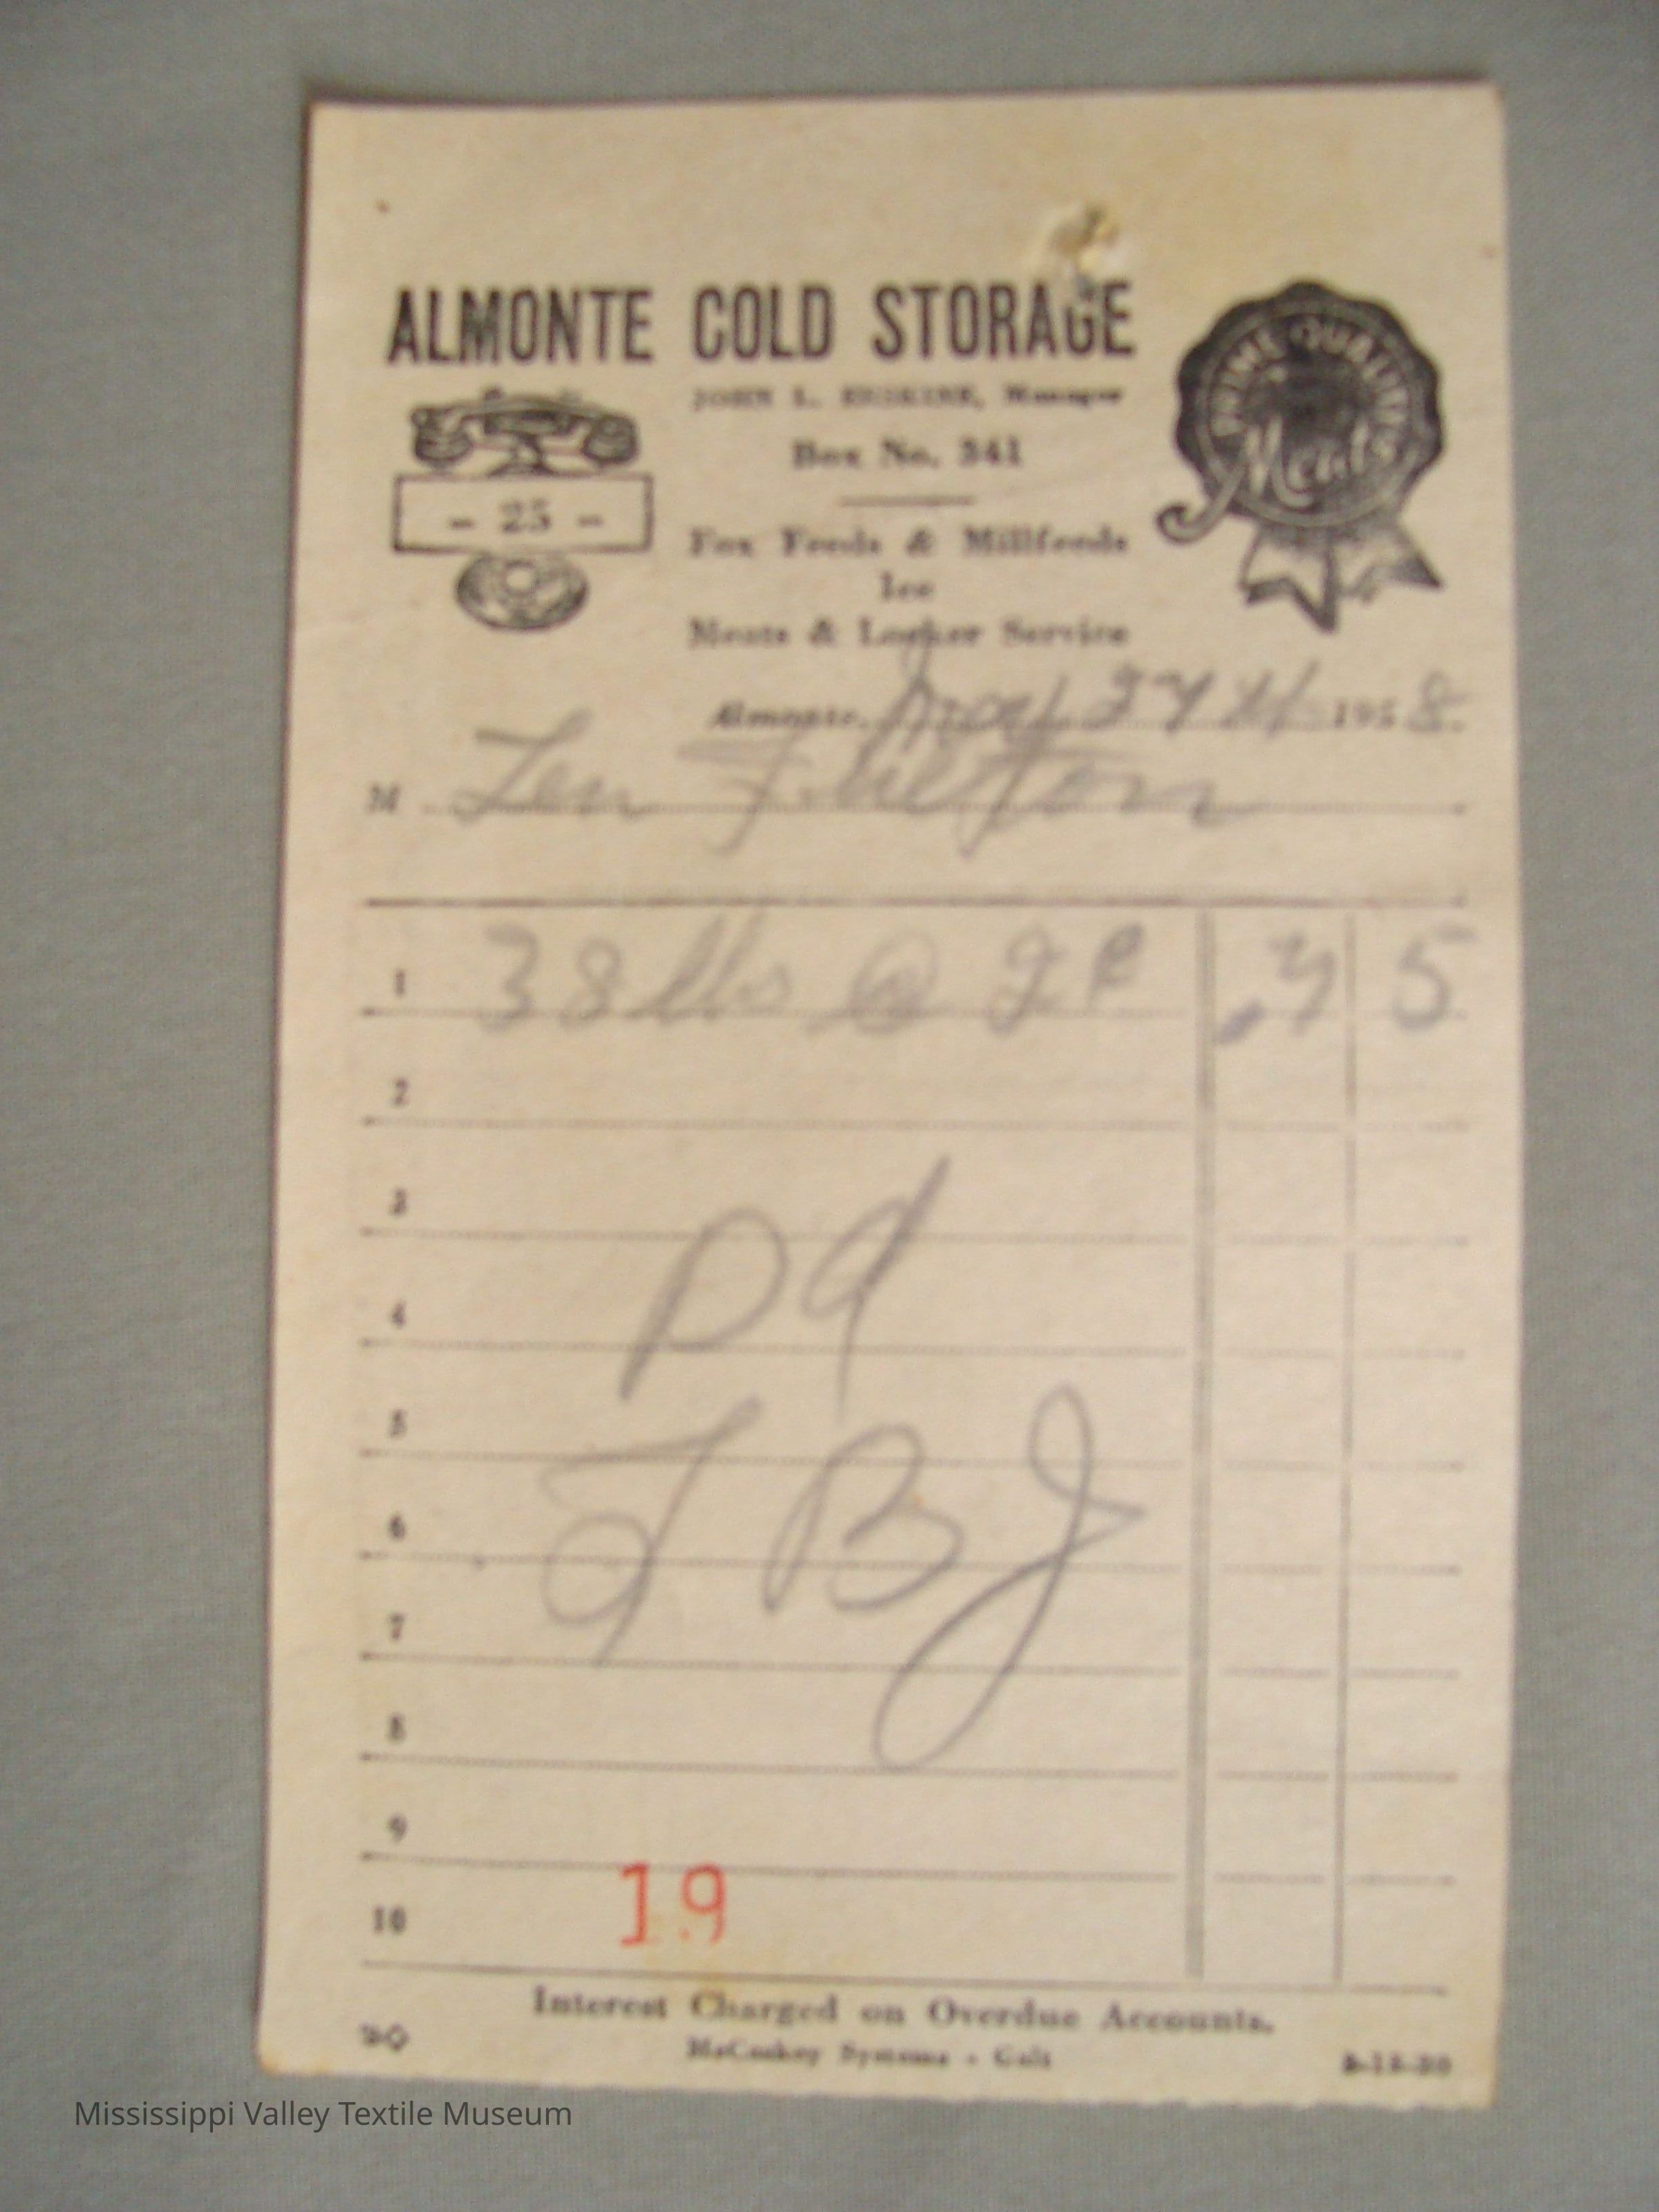 ALMONTE COLD STORAGE
JOHN L. ERSKINE, Manager
Box No. 341
- 25 -
PRIME QUALITY
Meats
Fox Feeds & Millfeeds
Ice
Meats & Locker Service
Almonte, 1958
M Len
1 38 lbs @ 2 ¢ .75
2
3
pd
4
5
6
7
8
9
10 19
Interest Charged on Overdue Accounts.
20 McCaskey Systems - Galt
Mississippi Valley Textile Museum